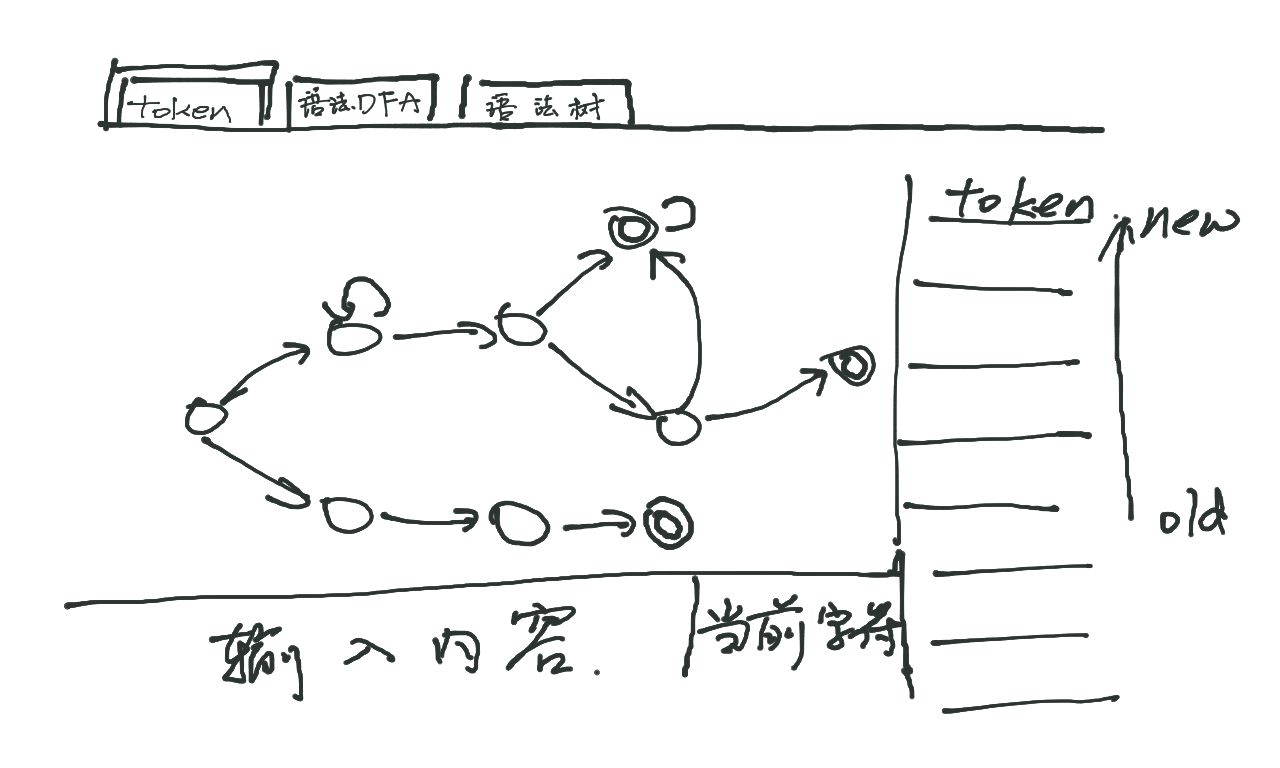 token 语法DFA 语法树
token
new
old
输入内容. 当前字符